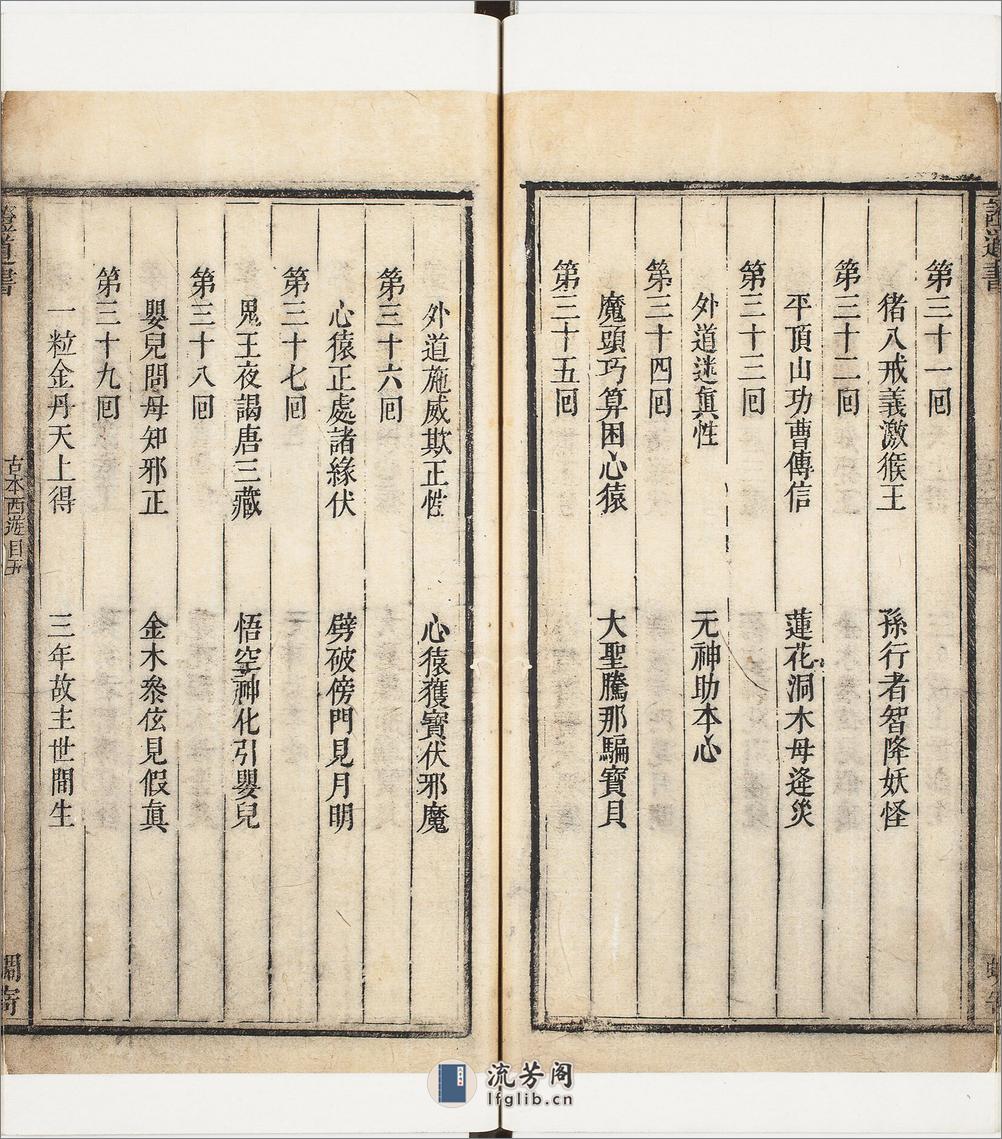 第三十一回
猪八戒義激猴王　孫行者智降妖怪
第三十二回
平頂山功曹傳信　蓮花洞木母逢災
第三十三回
外道迷眞性　元神助本心
第三十四回
魔頭巧算困心猿　大聖騰那騙寶貝
第三十五回
外道施威欺正性　心猿獲寶伏邪魔
第三十六回
心猿正處諸緣伏　劈破傍門見月明
第三十七回
鬼王夜謁唐三藏　悟空神化引嬰兒
第三十八回
嬰兒問母知邪正　金木參伭見假眞
第三十九回
一粒金丹天上得　三年故主世間生
證道書
古本西遊　目五
證道書
流芳阁
lfglib.cn